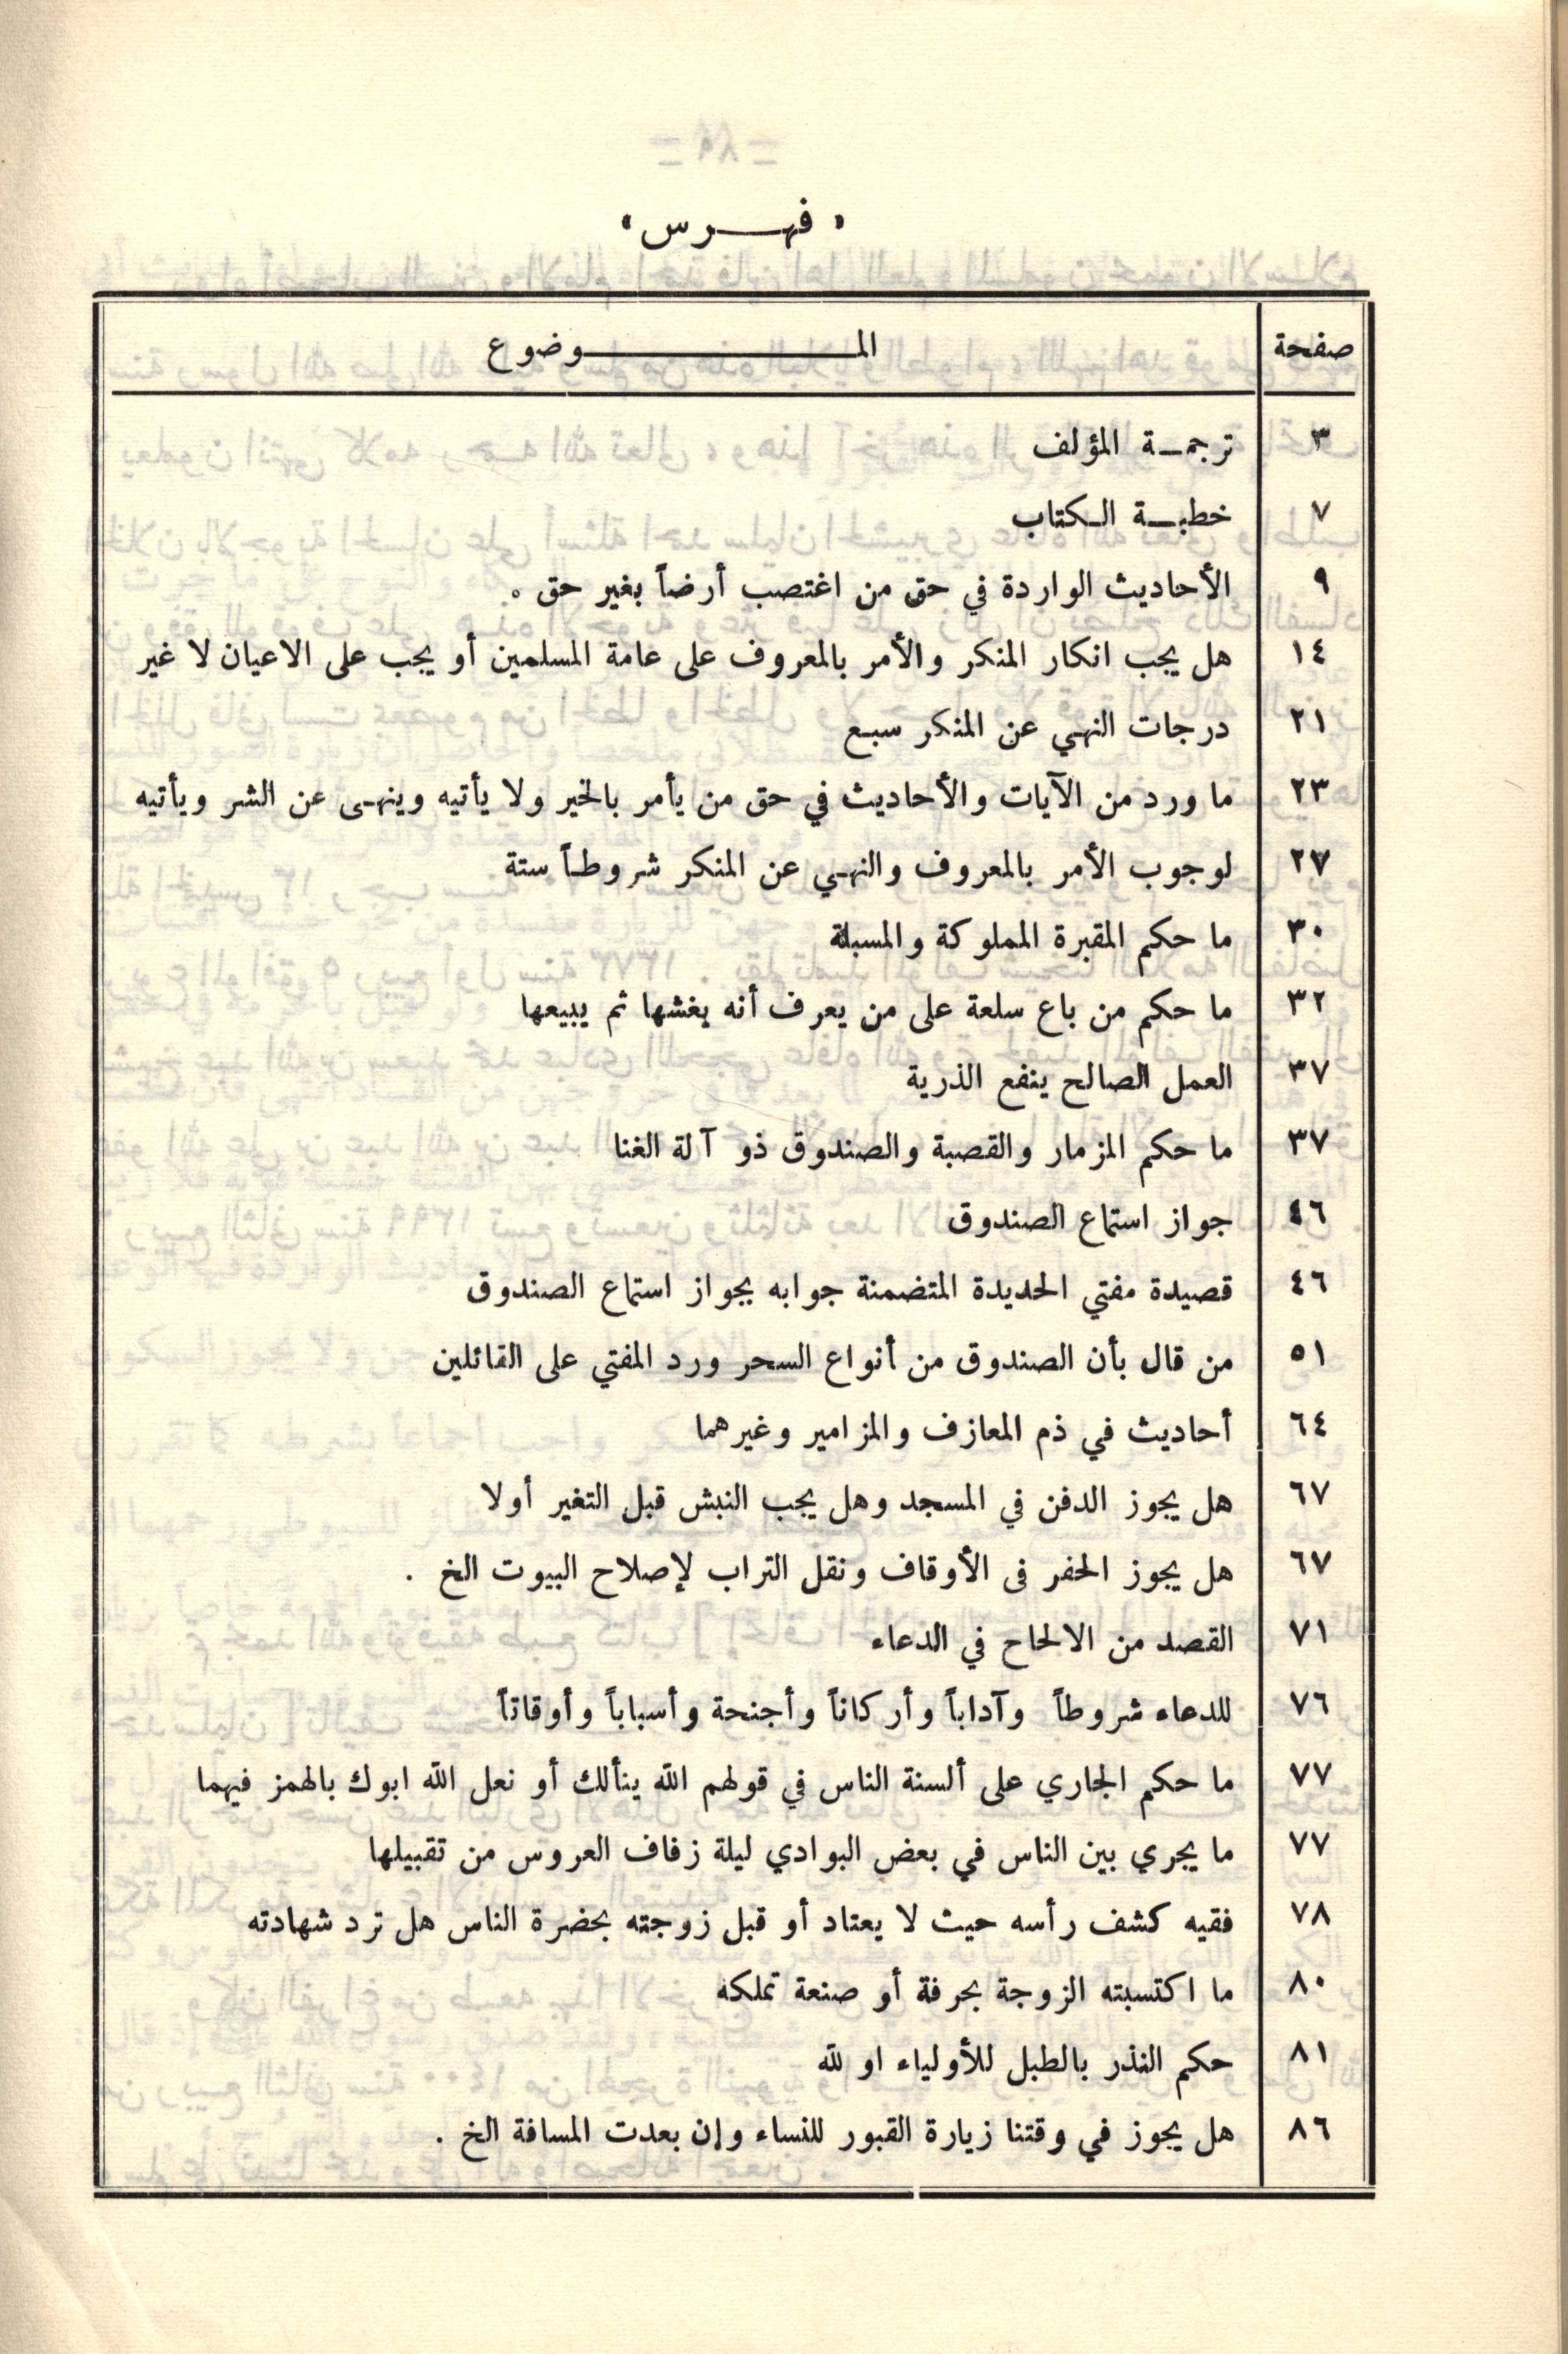 « فهرس »
صفحة الموضوع
٣ ترجمة المؤلف
٧ خطبة الكتاب
٩ الأحاديث الواردة في حق من اغتصب أرضاً بغير حق .
١٤ هل يجب انكار المنكر والأمر بالمعروف على عامة المسلمين أو يجب على الاعيان لا غير
٢١ درجات النهي عن المنكر سبع
٢٣ ما ورد من الآيات والأحاديث في حق من يأمر بالخير ولا يأتيه وينهى عن الشر ويأتيه
٢٧ لوجوب الأمر بالمعروف والنهي عن المنكر شروطاً ستة
٣٠ ما حكم المقبرة المملوكة والمسبلة
٣٢ ما حكم من باع سلعة على من يعرف أنه يغشها ثم يبيعها
٣٧ العمل الصالح ينفع الذرية
٣٧ ما حكم المزمار والقصبة والصندوق ذو آلة الغنا
٤٦ جواز استماع الصندوق
٤٦ قصيدة مفتي الحديدة المتضمنة جوابه بجواز استماع الصندوق
٥١ من قال بأن الصندوق من أنواع السحر ورد المفتي على القائلين
٦٤ أحاديث في ذم المعازف والمزامير وغيرهما
٦٧ هل يجوز الدفن في المسجد وهل يجب النبش قبل التغير أولا
٦٧ هل يجوز الحفر فى الأوقاف ونقل التراب لإصلاح البيوت الخ .
٧١ القصد من الالحاح في الدعاء
٧٦ للدعاء شروطاً وآداباً وأركاناً وأجنحة وأسباباً وأوقاتاً
٧٧ ما حكم الجاري على ألسنة الناس في قولهم الله ينألك أو نعل الله ابوك بالهمز فيهما
٧٧ ما يجري بين الناس في بعض البوادي ليلة زفاف العروس من تقبيلها
٧٨ فقيه كشف رأسه حيث لا يعتاد أو قبل زوجته بحضرة الناس هل ترد شهادته
٨٠ ما اكتسبته الزوجة بحرفة أو صنعة تملكه
٨١ حكم النذر بالطبل للأولياء او لله
٨٦ هل يجوز في وقتنا زيارة القبور للنساء وإن بعدت المسافة الخ .